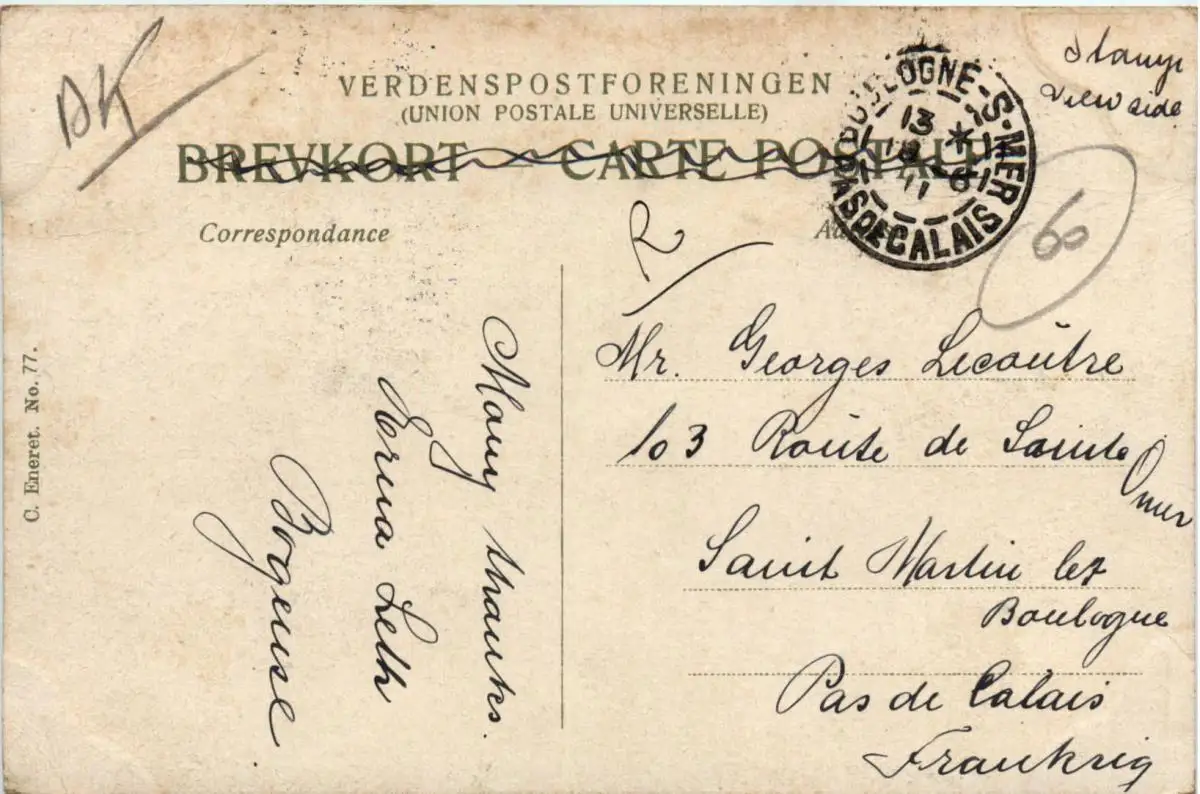 DK
VERDENSPOSTFORENINGEN
(UNION POSTALE UNIVERSELLE)
BREVKORT CARTE POSTALE
BOULOGNE-S-MER
PAS DE CALAIS
13 *
11
60
Correspondance
C. Eneret. No. 77.
Many thanks.
Erna Leth
Bogense
Mr. Georges Lecoûtre
103 Roûte de Sainte
Omer
Saint Martin lez
Boulogne
Pas de Calais
Frankrig